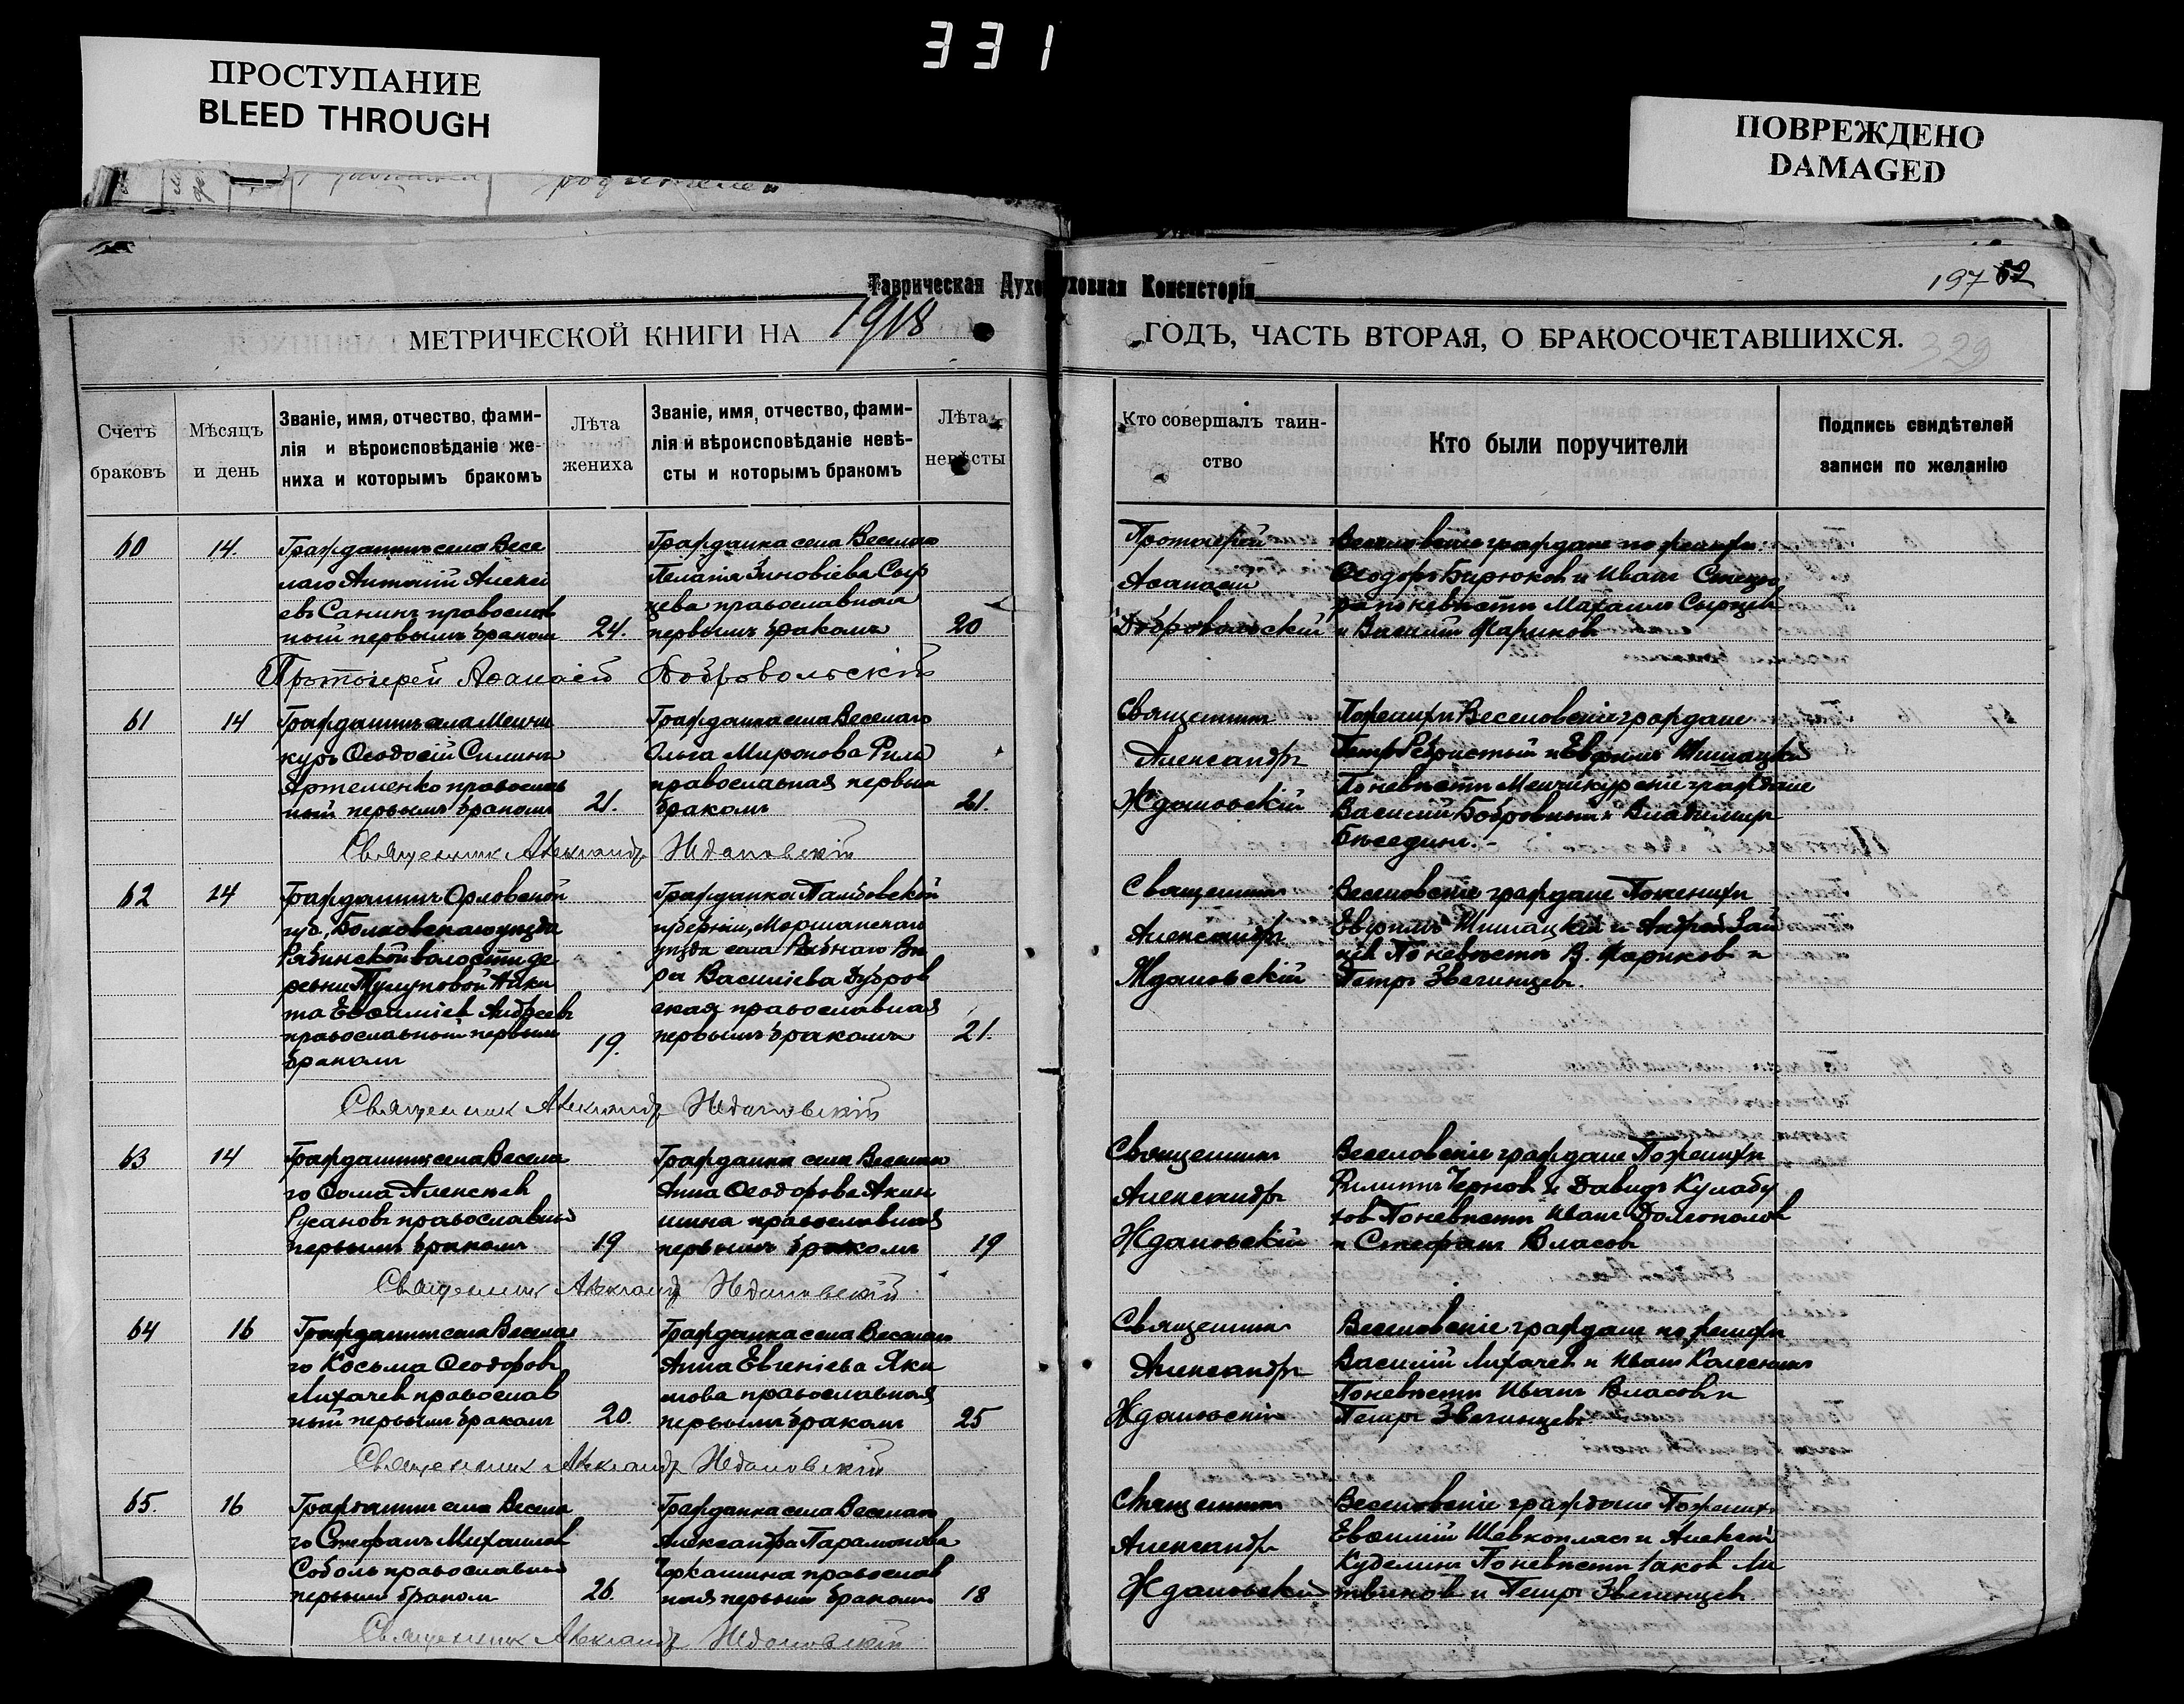 331
ПРОСТУПАНИЕ
BLEED THROUGH
ПОВРЕЖДЕНО
DAMAGED
Таврическая Духо
уховная Консисторія
197 62
МЕТРИЧЕСКОЙ КНИГИ НА 1918
ГОДЪ, ЧАСТЬ ВТОРАЯ, О БРАКОСОЧЕТАВШИХСЯ.
329
Счетъ
браковъ
Мѣсяцъ
и день
Званіе, имя, отчество, фами-
лія и вѣроисповѣданіе же-
ниха и которымъ бракомъ
Лѣта
жениха
Званіе, имя, отчество, фами-
лія и вѣроисповѣданіе невѣ-
сты и которымъ бракомъ
Лѣта
невѣсты
Кто совершалъ таин-
ство
Кто были поручители
Подпись свидѣтелей
записи по желанію
60
14.
Гражданинъ села Весе
лаго Антоній Алексі
евъ Санинъ православ
ный первымъ бракомъ
24.
Гражданка села Веселаго
Пелагія Зиновіева Сыр
цева православная
первымъ бракомъ
20
Протоіерей
Аѳанасій
Добровольскій
Веселовскіе граждане по женихѣ
Ѳеодоръ Бирюковъ и Иванъ
по невѣстѣ Михаилъ Сырцевъ
и Василій Фариковъ
Протоіерей Аѳанасій Добровольскій
61
14
Гражданинъ села Менчи
куръ Ѳеодосій Силинъ
Артеменко православ
ный первымъ бракомъ
21.
Гражданка села Веселаго
Ольга Миронова Рило
православная первым
бракомъ
21.
Священникъ
Александръ
Ждановскій
По женихѣ Веселовскіе граждане
Петръ Ребристый и Евфимъ Шишацкій
По невѣстѣ Менчикурскіе граждане
Василій Бобровный и Владимиръ
Бѣсединъ.
Священникъ Александръ Ждановскій
62
14
Гражданинъ Орловской
губ, Болховскаго уѣзда
Рябинской волости де
ревни Тулуповой Ники
та Евѳиміевъ Андреевъ
православный первым
бракомъ
19.
Гражданка Тамбовской
губерніи, Моршанскаго
уѣзда села Рыбнаго Вѣ
ра Василіева Дубров
ская православная
первымъ бракомъ
21.
Священникъ
Александръ
Ждановскій
Веселовскіе граждане По женихѣ
Евфимъ Шишацкій и Андрей Зай
цевъ По невѣстѣ В. Фариковъ и
Петръ Звегинцевъ.
Священникъ Александръ Ждановскій
63
14
Гражданинъ села Весела
го Ѳома Алексѣевъ
Русановъ православный
первымъ бракомъ
19
Гражданка села Веселаго
Анна Ѳеодорова Акин
шина православная
первымъ бракомъ
19
Священникъ
Александръ
Ждановскій
Веселовскіе граждане По женихѣ
Филиппъ Черновъ и Давидъ Кулабу
ховъ По невѣстѣ Иванъ Долгополовъ
и Стефанъ Власовъ
Священникъ Александръ Ждановскій
64
16
Гражданинъ села Весела
го Косьма Ѳеодоровъ
Лихачевъ православ
ный первымъ бракомъ
20.
Гражданка села Веселаго
Анна Евгеніева Яки
мова православная
первымъ бракомъ
25
Священникъ
Александръ
Ждановскій
Веселовскіе граждане по женихѣ
Василій Лихачевъ и Иванъ Колесникъ
По невѣстѣ Иванъ Власовъ и
Петръ Звегинцевъ
Священникъ Александръ Ждановскій
65.
16
Гражданинъ села Весела
го Стефанъ Михаиловъ
Соболь православный
первымъ бракомъ
26.
Гражданка села Веселаго
Александра Парамонова
православ
ная первымъ бракомъ
18
Священникъ
Александръ
Ждановскій
Веселовскіе граждане По женихѣ
Евѳимій Шевкоплясъ и Алексѣй
Куделинъ По невѣстѣ Іаковъ Ли
твиновъ и Петръ Звегинцевъ.
Священникъ Александръ Ждановскій